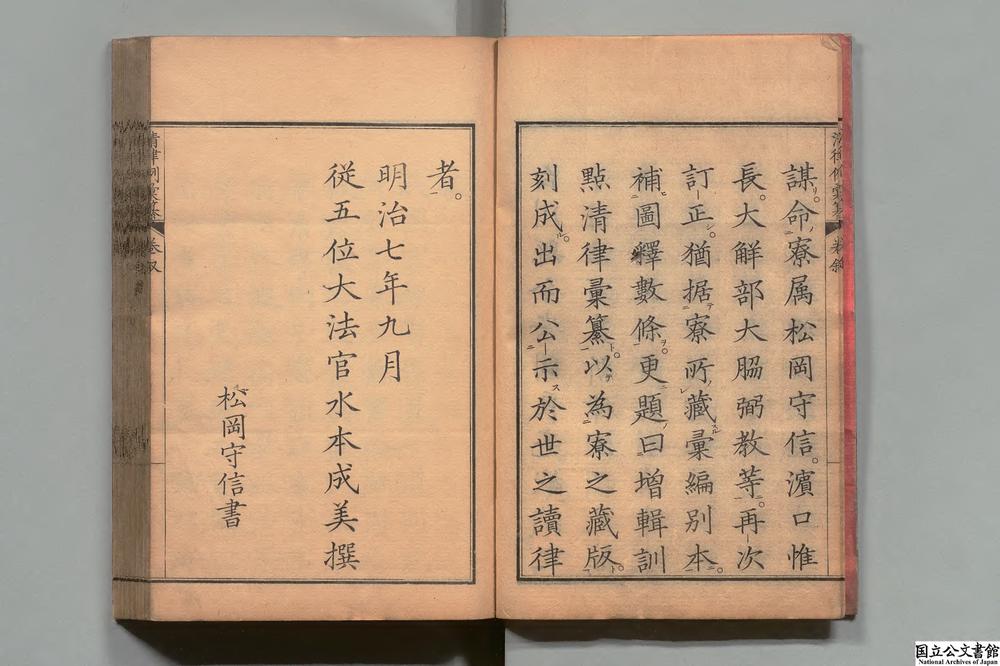 謀命寮属松岡守信。濱口惟
長。大觧部大脇弼教等。再次
訂正。猶据寮所藏彙編別本。
補圖釋數條。更題曰増輯訓
點清律彙纂。以為寮之藏版。
刻成。出而公示於世之讀律
者。
明治七年九月
従五位大法官水本成美撰
松岡守信書
国立公文書館
National Archives of Japan